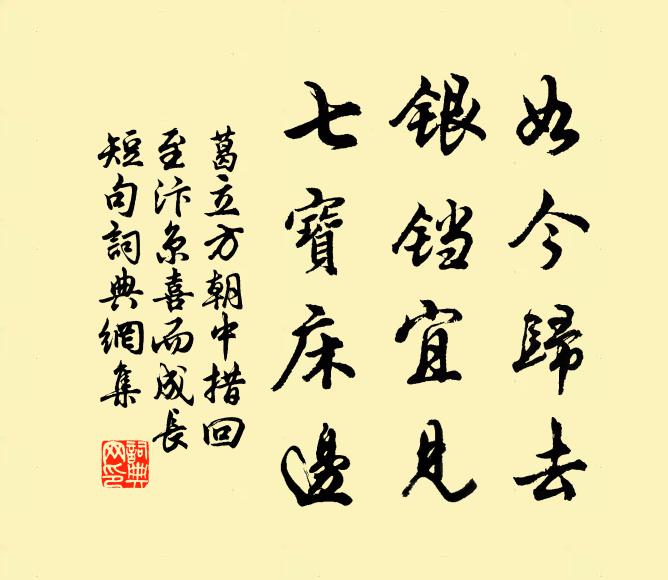 如今歸去
银铛宜見
七寶床邊
葛立方朝中措回
至汴京喜而成長
短句詞典網集
詞典
网印